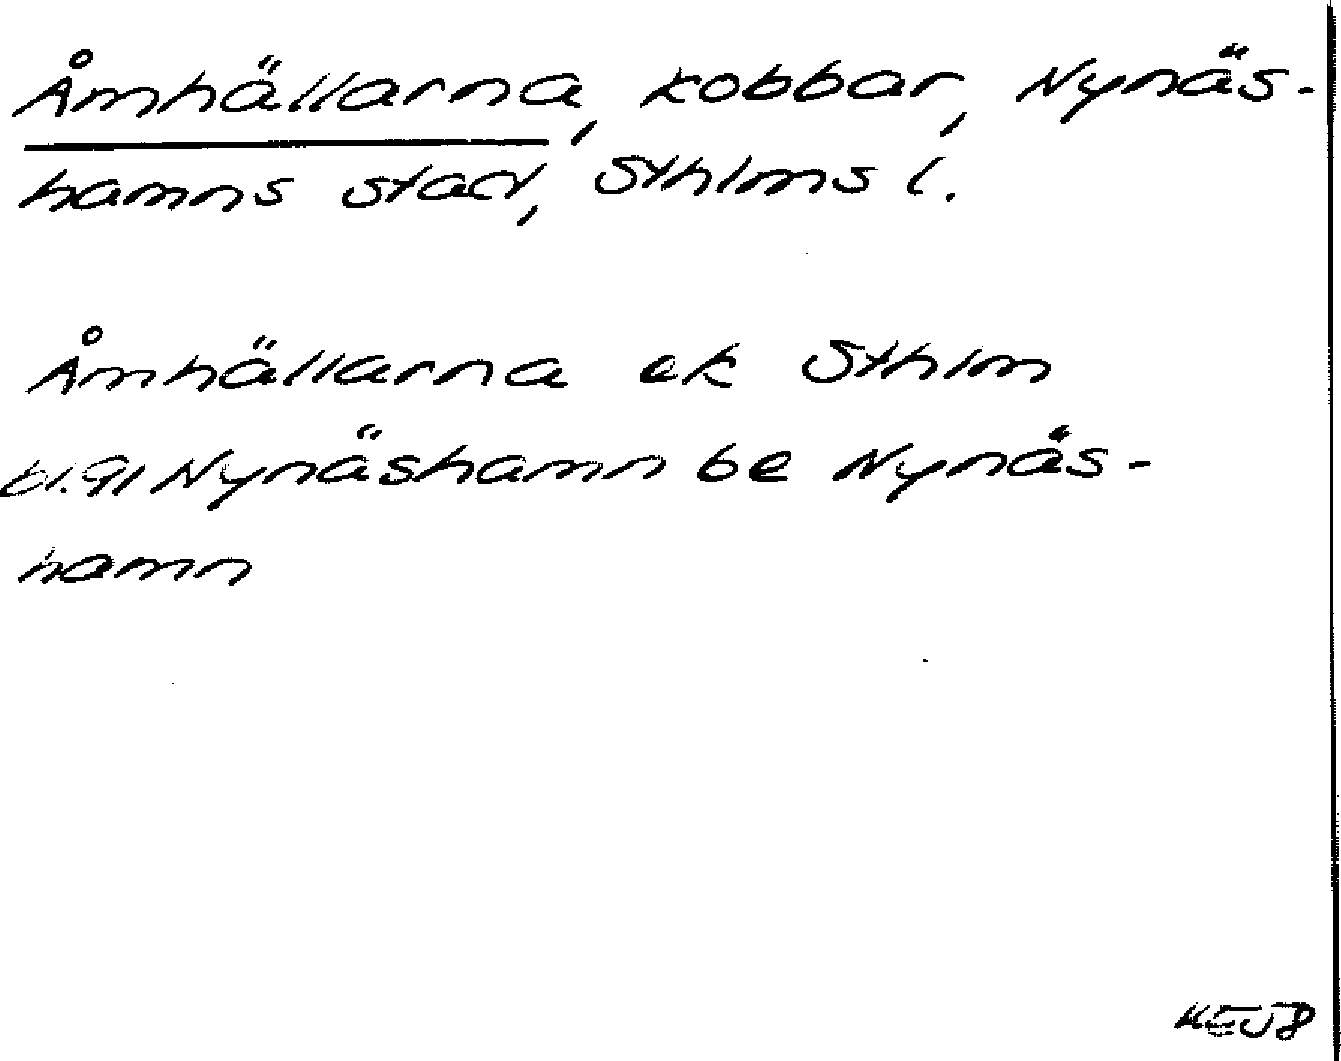 Åmhällarna, kobbar, Nynäs-
hamns stad, Sthlms l.
Åmhällarna ek Sthlm
bl. 91 Nynäshamn be Nynäs-
hamn